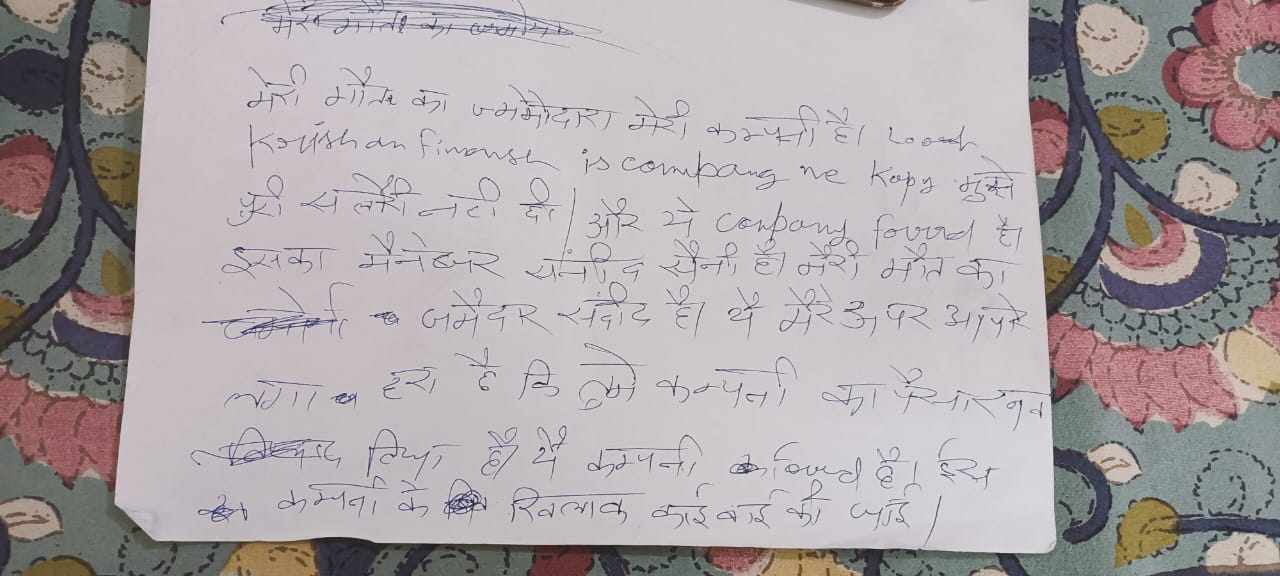 मेरी मौत का जमेमेदारा मेरी कम्पनी है। Looch
Krishan finansh is company ne Kapy मुझे
पुरी सलेरी नटी दी। और ये conpany fourd है।
इसका मैनेजर सैनी है। मेरी मौत का
जमेदार संदीद है। ये मेरे ऊपर आपरे
लगा हरा है कि कम्पनी का
लिया है। ये कम्पनी fourd है। इस
कम्पनी के खिलाक काईबाई की जाई।